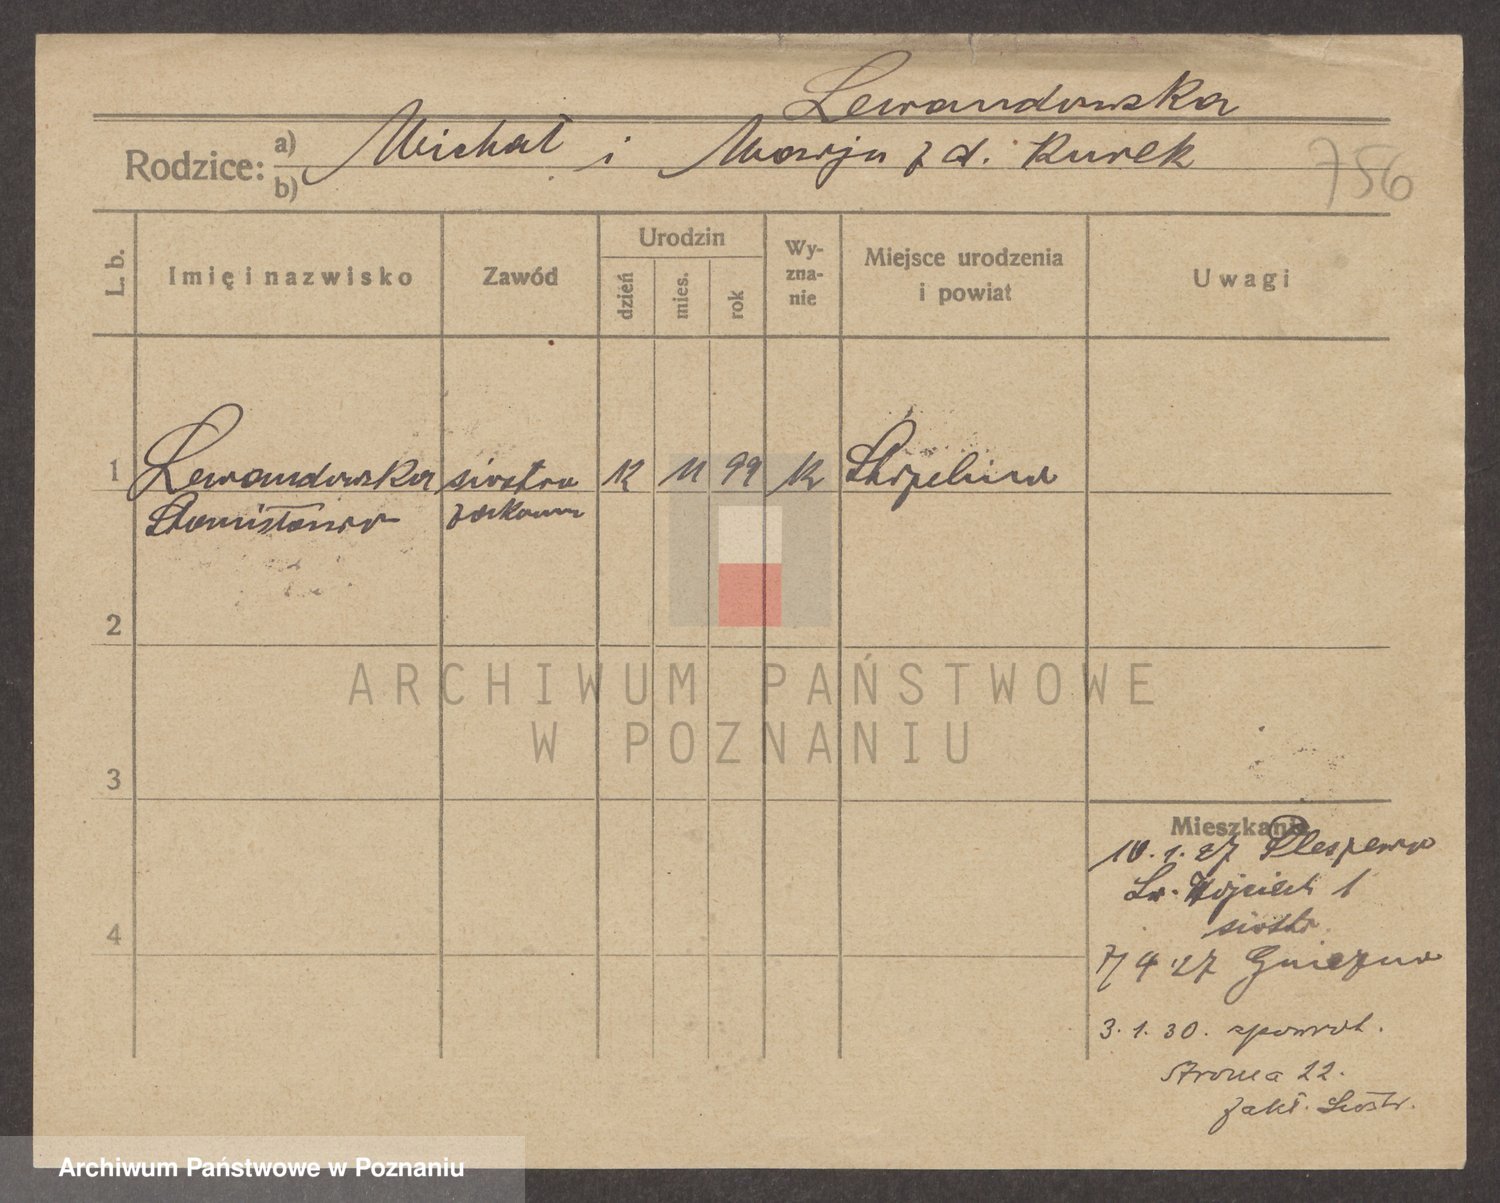 Lewandowska
Rodzice: a) Michał i Marja z d. Kurek
b)
756
L. b.
Imię i nazwisko
Zawód
Urodzin
dzień
mies.
rok
Wy-
zna-
nie
Miejsce urodzenia
i powiat
Uwagi
1
Lewandowska siostra 12 11 99 k
Stanisława zakonn
2
ARCHIWUM PAŃSTWOWE
W POZNANIU
3
Mieszkanie
10.1.27 Pleszewa
Św. Wojciech 1
siostr.
4
7/4 27 Gniezno
3.1.30. zpowrot.
Stroma 22.
zakł. Siostr.
Archiwum Państwowe w Poznaniu